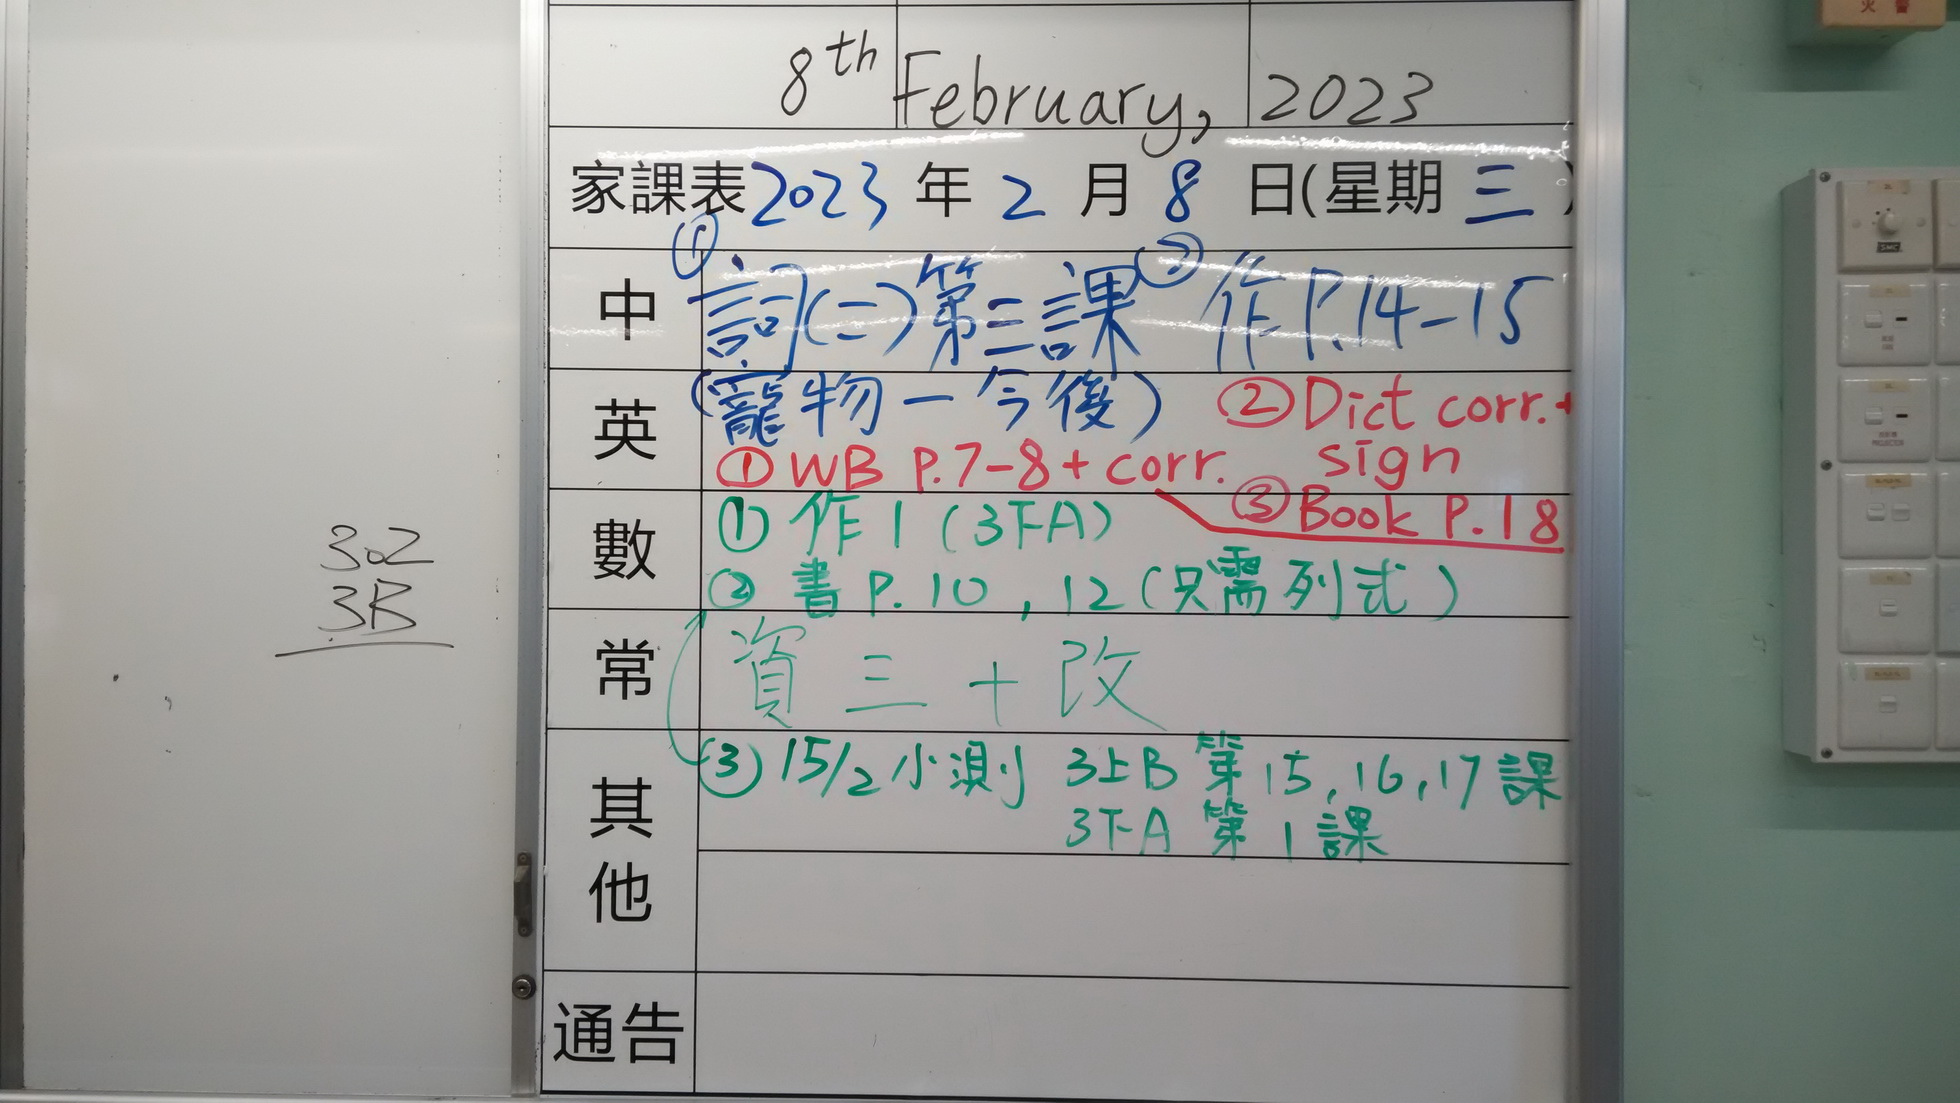 火警
8th February, 2023
家課表2023年2月8日(星期三)
中 ① 詞(二)第三課 ② 作P.14-15
(寵物－今後)
英 ① WB P.7-8 + corr. ② Dict corr. + sign
③ Book P.18
數 ① 作1 (3下A)
② 書 P.10, 12 (只需列式)
常 資三 + 改
其他 ③ 15/2 小測 3上B 第15, 16, 17課
3下A 第1課
通告
302
3B
SMC
PROJECTOR